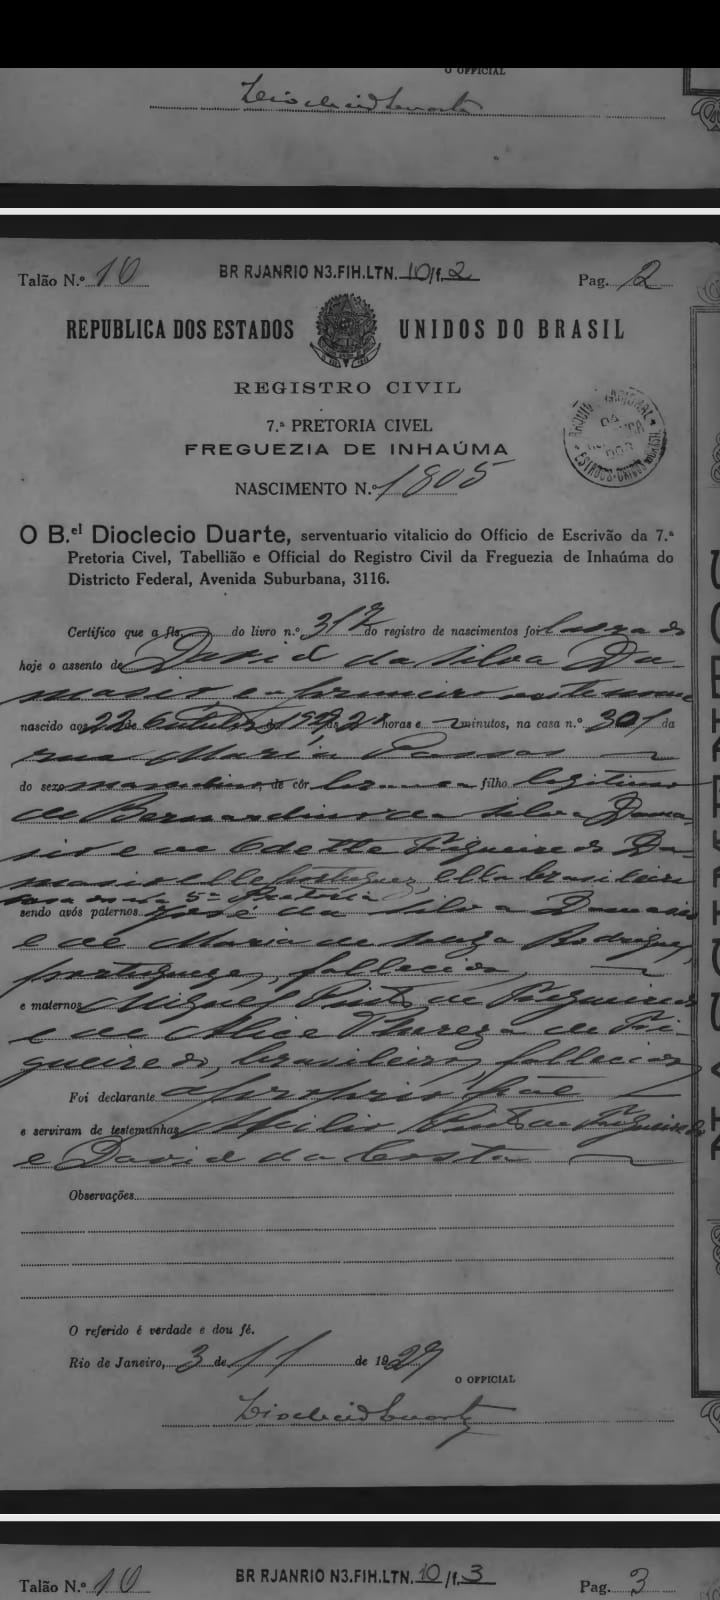 O OFFICIAL
Dioclecio Duarte
Talão N.º 10
BR RJANRIO N3.FIH.LTN. 10/f. 2
Pag. 2
REPUBLICA DOS ESTADOS UNIDOS DO BRASIL
REGISTRO CIVIL
7.ª PRETORIA CIVEL
FREGUEZIA DE INHAÚMA
NASCIMENTO N.º 1805
O B.el Dioclecio Duarte, serventuario vitalicio do Officio de Escrivão da 7.ª
Pretoria Civel, Tabellião e Official do Registro Civil da Freguezia de Inhaúma do
Districto Federal, Avenida Suburbana, 3116.
Certifico que a fls. do livro n.º 317 do registro de nascimentos foi
hoje o assento de David da Silva Da-
masio
nascido aos 22 de Outubro de horas e minutos, na casa n.º 301 da
rua Maria Passos
do sexo masculino, de côr branca filho legitimo
de Bernardino da Silva Dama-
sio e de Odette Figueiredo Da-
masio elle portuguez, ella brasileira
5ª Pretoria
sendo avós paternos José da Silva Damasio
e de Maria de Souza Rodrigues,
portuguezes, fallecidos
e maternos Miguel Pinto de Figueiredo
e de Alice Thereza de Fi-
gueiredo, brasileiros, fallecidos
Foi declarante o proprio pae
e serviram de testemunhas Pinto de Figueiredo
e David da Costa
Observações
O referido é verdade e dou fé.
Rio de Janeiro, 3 de 11 de 1929
O OFFICIAL
Dioclecio Duarte
Talão N.º 10
BR RJANRIO N3.FIH.LTN. 10/f. 3
Pag. 3